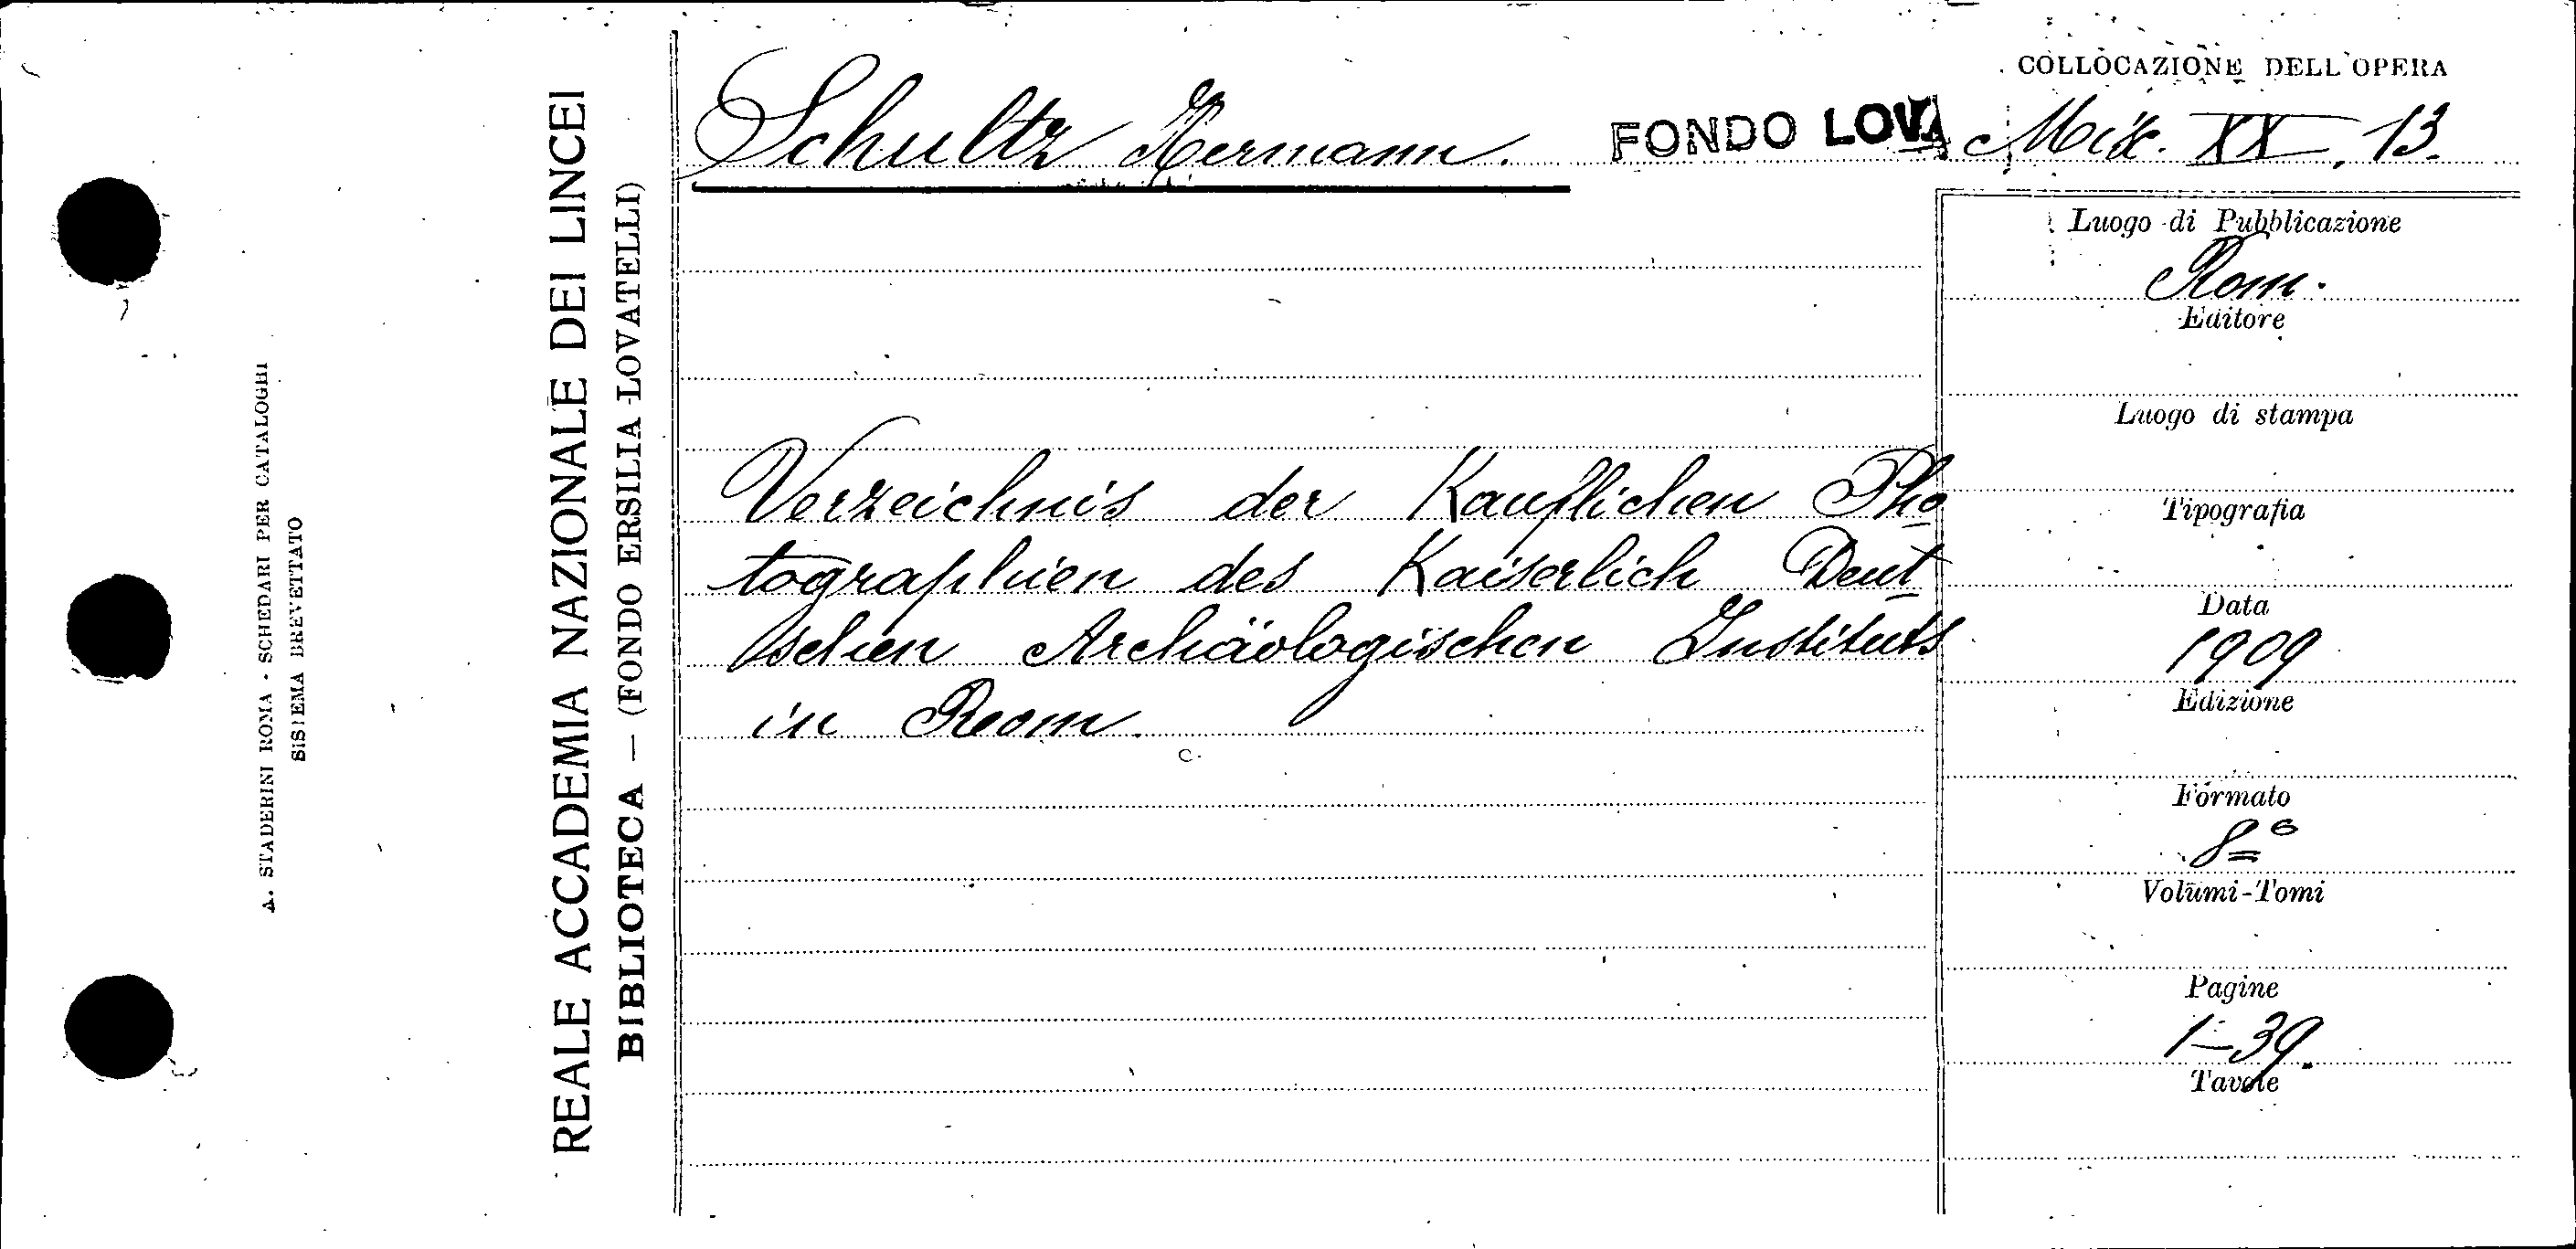 COLLOCAZIONE DELL'OPERA
Schultz Hermann.
FONDO LOVA
XX, 13.
Luogo di Pubblicazione
Rom.
Editore
Luogo di stampa
Tipografia
Data
1909
Edizione
Formato
8°
Volumi-Tomi
Pagine
1-39.
Tavole
Verzeichnis der Kauflichen Pho
tographien des Kaiserlich Deut
schen Archäologischen Instituts
in Room.
REALE ACCADEMIA NAZIONALE DEI LINCEI
BIBLIOTECA — (FONDO ERSILIA LOVATELLI)
A. STADERINI ROMA - SCHEDARI PER CATALOGHI
SISTEMA BREVETTATO